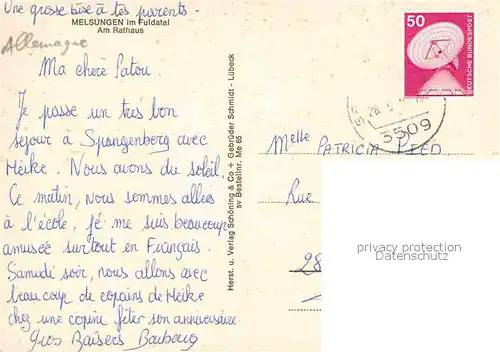 Une grosse bise à tes parents.
MELSUNGEN im Fuldatal
Am Rathaus
Allemagne
Ma chère Patou.
Je passe un très bon
séjour à Spangenberg avec
Heike. Nous avons du soleil.
Ce matin, nous sommes allées
à l'école, je me suis beaucoup
amusée surtout en Français.
Samedi soir, nous allons avec
beaucoup de copains de Heike
chez une copine fêter son anniversaire
Gros Baisers
Herst. u. Verlag Schöning & Co + Gebrüder Schmidt - Lübeck
sv Bestellnr. Me 65
50
DEUTSCHE BUNDESPOST
3509
Melle PATRICIA PIED
Rue
28
privacy protection
Datenschutz